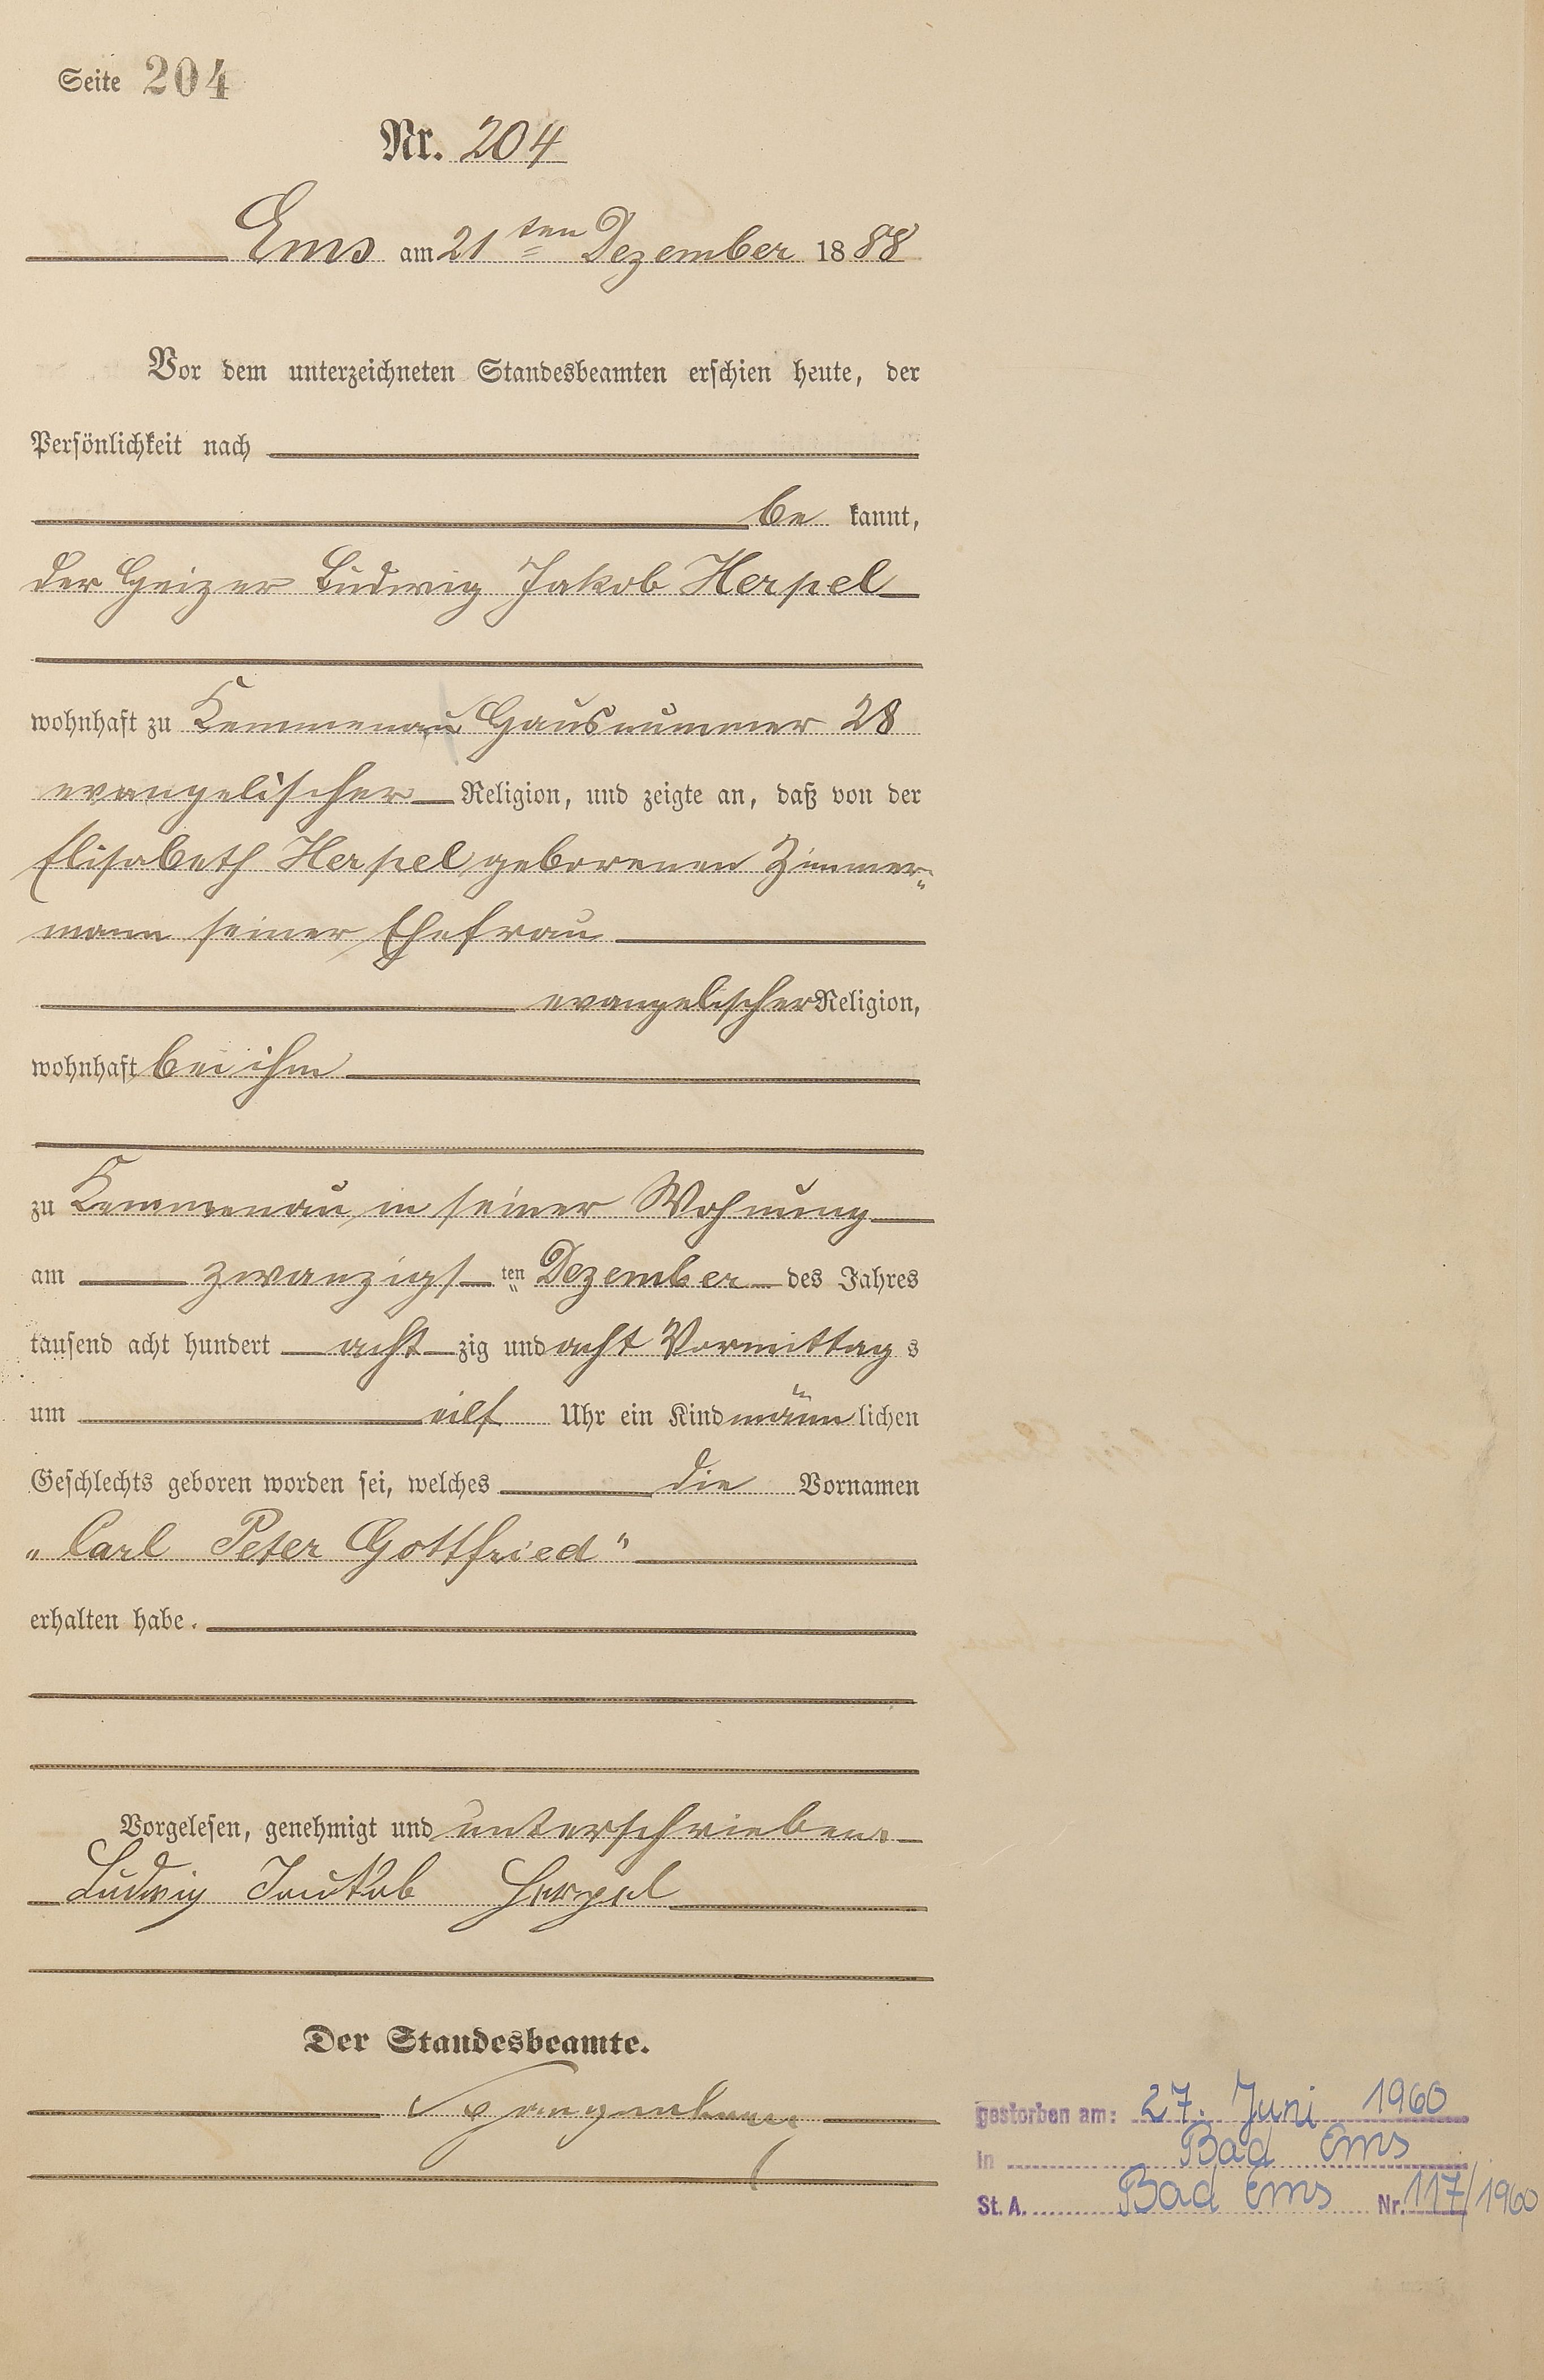 Seite 204
Nr. 204
Ems am 21ten Dezember 1888
Vor dem unterzeichneten Standesbeamten erschien heute, der
Persönlichkeit nach
be kannt,
der Heizer Ludwig Jakob Herpel
wohnhaft zu Kemmenau Hausnummer 28
evangelischer Religion, und zeigte an, daß von der
Elisabeth Herpel geborenen Zimmer„
mann seiner Ehefrau
evangelischer Religion,
wohnhaft bei ihm
zu Kemmenau in seiner Wohnung
am zwanzigsten Dezember des Jahres
tausend acht hundert acht zig und acht Vormittag s
um eilf Uhr ein Kind männ lichen
Geschlechts geboren worden sei, welches die Vornamen
„Carl Peter Gottfried“
erhalten habe.
Vorgelesen, genehmigt und unterschrieben.
Ludwig Jakob Herpel
Der Standesbeamte.
gestorben am: 27. Juni 1960
in Bad Ems
St. A. Bad Ems Nr. 117/1960